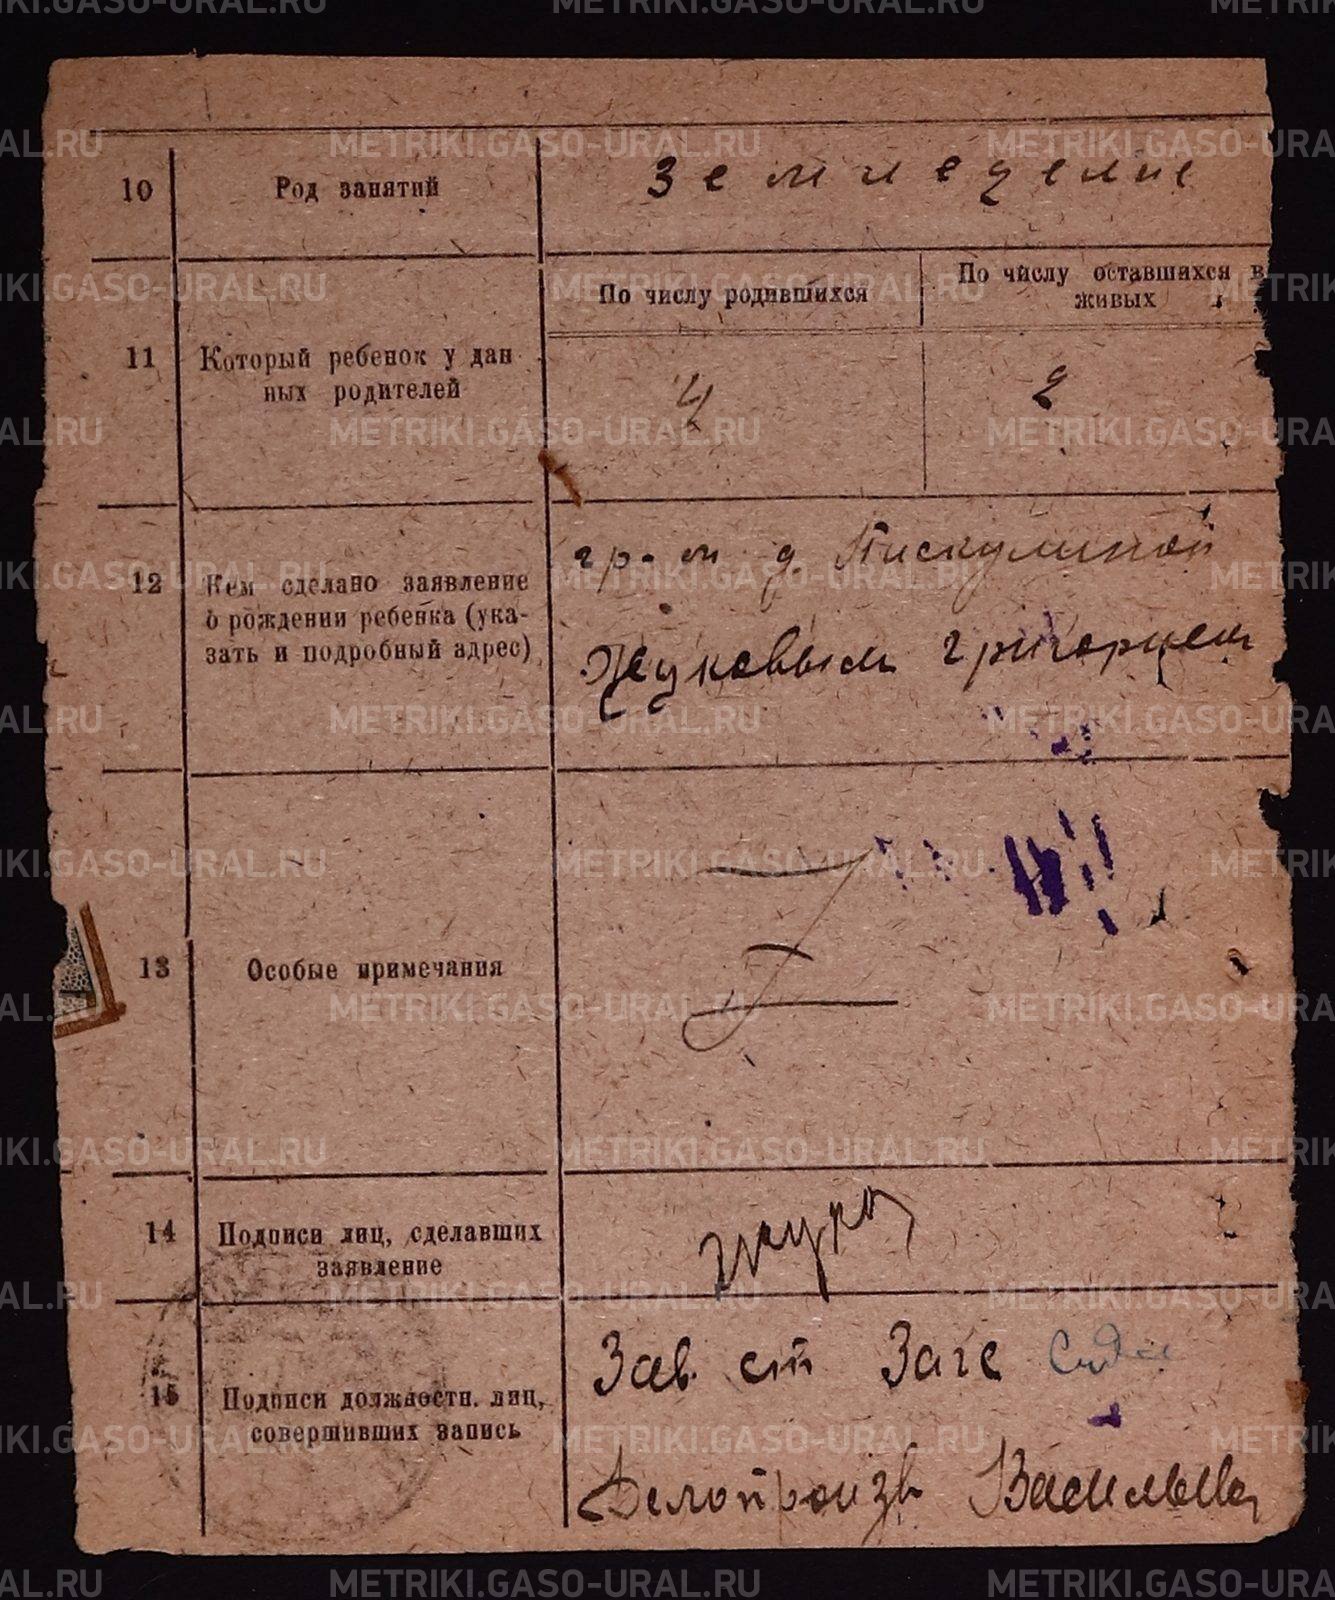 10
Род занятий
Земледелие
По числу родившихся
По числу оставшихся в
живых
11
Который ребенок у дан
ных родителей
4
2
12
Кем сделано заявление
о рождении ребенка (ука-
зать и подробный адрес)
гр-м д Пискулиной
Жуковым Григорием
13
Особые примечания
14
Подписи лиц, сделавших
заявление
15
Подписи должностн. лиц,
совершивших запись
Зав. ст Загс
Делопроизв Васильева
METRIKI.GASO-URAL.RU